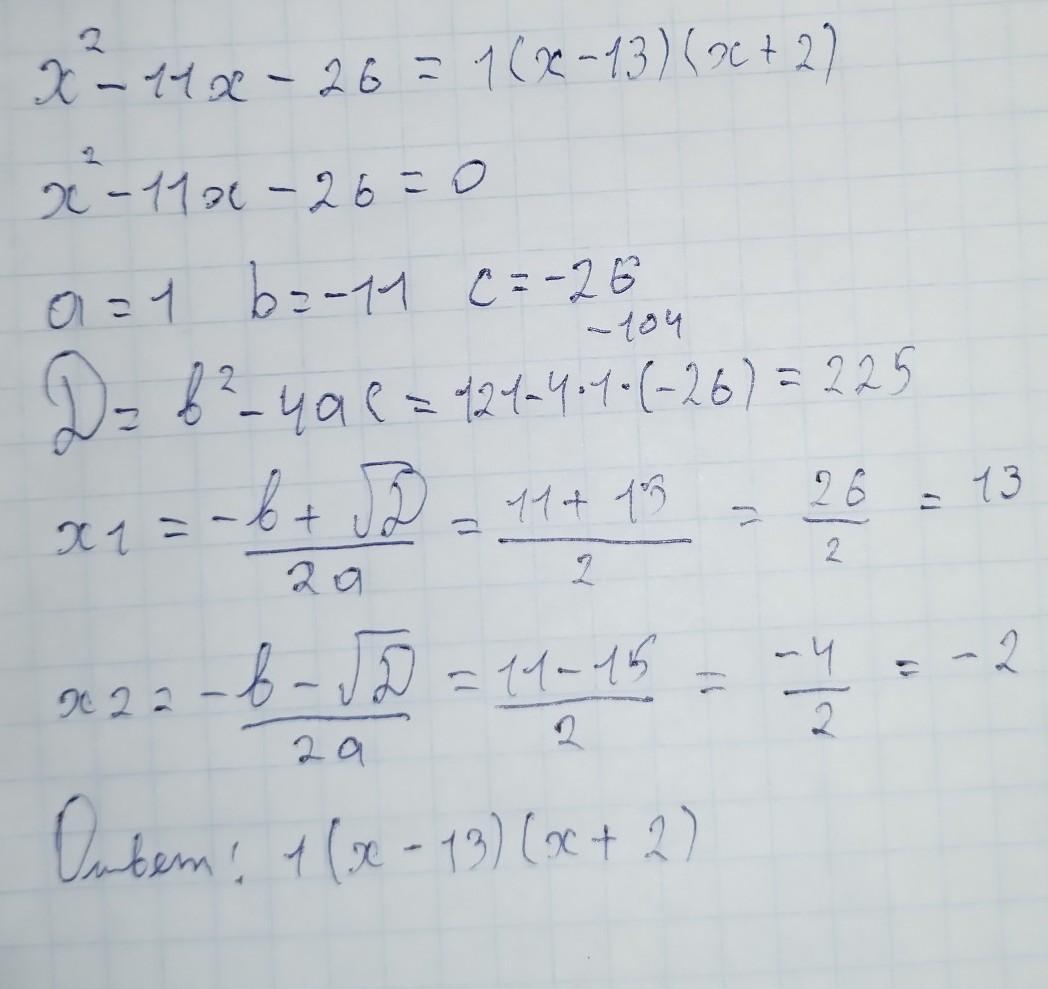 x² - 11x - 26 = 1(x - 13)(x + 2)
x² - 11x - 26 = 0
a = 1 b = -11 c = -26
-104
D = b² - 4ac = 121 - 4·1·(-26) = 225
x1 = -b + √D / 2a = 11 + 15 / 2 = 26 / 2 = 13
x2 = -b - √D / 2a = 11 - 15 / 2 = -4 / 2 = -2
Ответ: 1(x - 13)(x + 2)